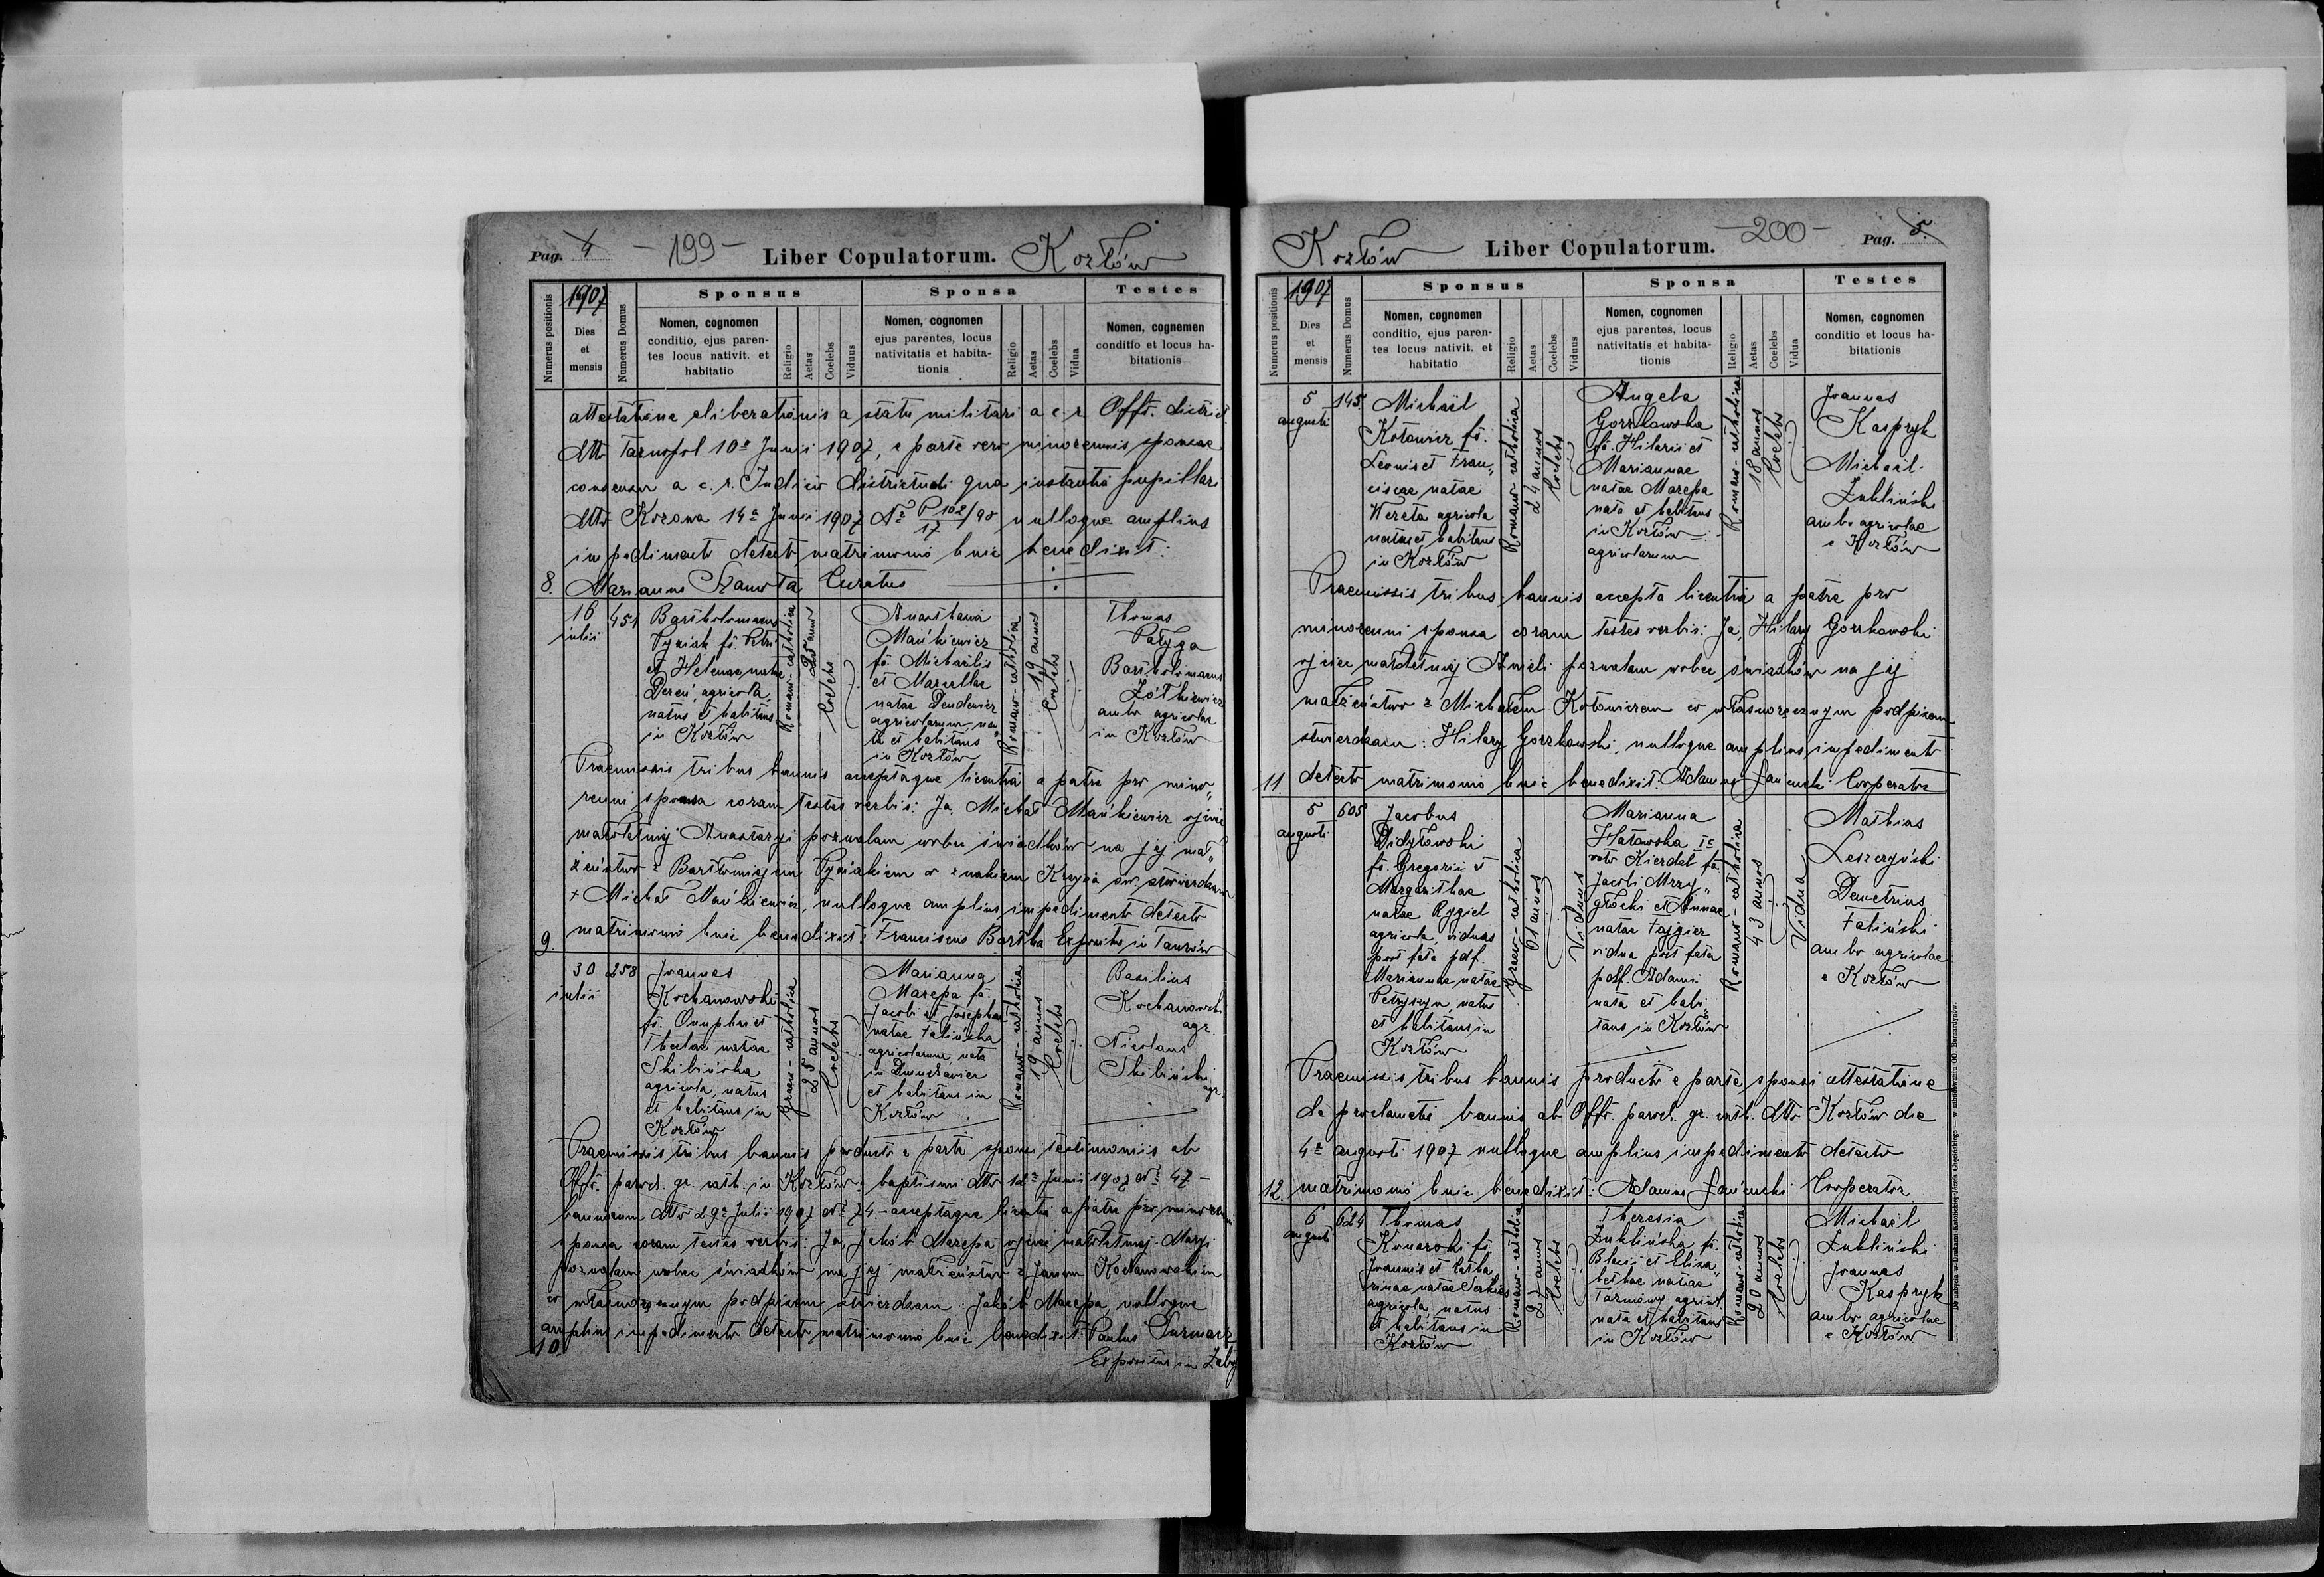 Pag. 4 - 199 - Liber Copulatorum. Kozłów
1907
Sponsus Sponsa Testes
Numerus positionis
Dies et mensis
Numerus Domus
Nomen, cognomen
conditio, ejus paren-
tes locus nativit. et
habitatio
Religio
Aetas
Coelebs
Viduus
Nomen, cognomen
ejus parentes, locus
nativitatis et habita-
tionis
Religio
Aetas
Coelebs
Vidua
Nomen, cognemen
conditio et locus ha-
bitationis
attestatione liberationis a statu militari a c. r. Offo. district.
ddto Tarnopol 10a Junii 1907, e parte vero minorennis sponsae
consensu a c. r. Judicio districtuali qua instantia pupillari
ddto Kozowa 14a Junii 1907 No P 102/17/98 nulloque amplius
impedimento detecto matrimonio huic benedixit:
8. Marianus Curatus
16
julii
451
Bartholomaeus
fs. Petri
et Helenae natae
Dereń, agricola
natus et habitans
in Kozłów
Romano-catholica
25 annos
Coelebs
Anastasia
Mańkiewicz
fa. Michaëlis
et Marcellae
natae Dendewicz
agricolarum, na„
ta et habitans
in Kozłów
Romano-catholica
19 annos
Coelebs
Thomas
Pałyga
Bartholomaeus
Żółkiewicz
ambo agricolae
in Kozłów
Praemissis tribus bannis acceptaque licentia a patre pro mino„
renni sponsa coram testes verbis: Ja, Michał Mańkiewicz ojciec
małoletniej Anastazyi pozwalam wobec świadków na jej mał„
żeństwo z Bartłomiejem co znakiem Krzyża św. stwierdzam
+ Michał Mańkiewicz, nulloque amplius impedimento detecto
9. matrimonio huic benedixit: Franciscus Bartha Expositus in Taurów
30
julii
258
Joannes
Kochanowski
fs. Onuphrii et
Theclae natae
Skibińska
agricola, natus
et habitans in
Kozłów
Graeco-catholica
25 annos
Coelebs
Marianna
Mazepa fa.
Jacobi et Josephae
natae Falińska
agricolarum, nata
in Dmuchawiec
et habitans in
Kozłów
Romano-catholica
19 annos
Coelebs
Basilius
Kochanowski
agr.
Nicolaus
Skibiński
agr.
Praemissis tribus bannis producto e parte sponsi testimoniis ab
Offo. paroch. gr. cath. in Kozłów: baptismi ddto 12a Junii 1907 No 47 -
bannorum ddto 29a Julii 1907 No 74 - acceptaque licentia a patre pro minorenni
sponsa coram testes verbis: Ja, Jakób Mazepa ojciec małoletniej Maryi
pozwalam wobec świadków na jej małżeństwo z Janem Kochanowskim
co własnoręcznym podpisem stwierdzam: Jakób Mazepa, nulloque
amplius impedimento detecto matrimonio huic benedixit: Paulus
10. Expositus in
Kozłów Liber Copulatorum. - 200 - Pag. 5.
1907
Sponsus Sponsa Testes
Numerus positionis
Dies et mensis
Numerus Domus
Nomen, cognomen
conditio, ejus paren-
tes locus nativit. et
habitatio
Religio
Aetas
Coelebs
Viduus
Nomen, cognomen
ejus parentes, locus
nativitatis et habita-
tionis
Religio
Aetas
Coelebs
Vidua
Nomen, cognomen
conditio et locus ha-
bitationis
5
augusti
145
Michaël
Kotowicz fs.
Leonis et Fran„
ciscae natae
Wereta agricola
natus et habitans
in Kozłów
Romano-catholica
24 annos
Coelebs
Angela
Gorzkowska
fa. Hilarii et
Mariannae
natae Mazepa
nata et habitans
in Kozłów
agricolarum
Romano-catholica
18 annos
Coelebs
Joannes
Kaspryk
Michaël
Żukliński
ambo agricolae
e Kozłów
Praemissis tribus bannis accepta licentia a patre pro
minorenni sponsa coram testes verbis: Ja, Hilary Gorzkowski
ojciec małoletniej Anieli pozwalam wobec świadków na jej
małżeństwo z Michałem Kotowiczem co własnoręcznym podpisem
stwierdzam: Hilary Gorzkowski, nulloque amplius impedimento
11. detecto matrimonio huic benedixit: Adamus Cooperator
5
augusti
605
Jacobus
Didyłowski
fs. Gregorii et
Margarithae
natae Rygiel
agricola, viduus
post fata pdf.
Mariannae natae
Petryszyn, natus
et habitans in
Kozłów
Graeco-catholica
61 annos
Viduus
Marianna
Hatowska Io
voto Kierdal fa.
Jacobi Mrzy„
głocki et Annae
natae Fajgier
vidua post fata
pdf. Adami
nata et habi„
tans in Kozłów
Romano-catholica
43 annos
Vidua
Mathias
Leszczyński
Demetrius
Faliński
ambo agricolae
e Kozłów
Praemissis tribus bannis producto e parte sponsi attestatione
de proclamatis bannis ab Offo. paroch. gr. cath. ddto Kozłów die
4a augusti 1907 nulloque amplius impedimento detecto
12. matrimonio huic benedixit: Adamus Cooperator
6
augusti
624
Thomas
Konarski fs.
Joannis et Catha„
rinae natae
agricola, natus
et habitans in
Kozłów
Romano-catholica
27 annos
Coelebs
Theresia
Żuklińska fa.
Blasii et Elisa„
bethae natae
Tarnowy agricol.
nata et habitans
in Kozłów
Romano-catholica
20 annos
Coelebs
Michaël
Żukliński
Joannes
Kaspryk
ambo agricolae
e Kozłów